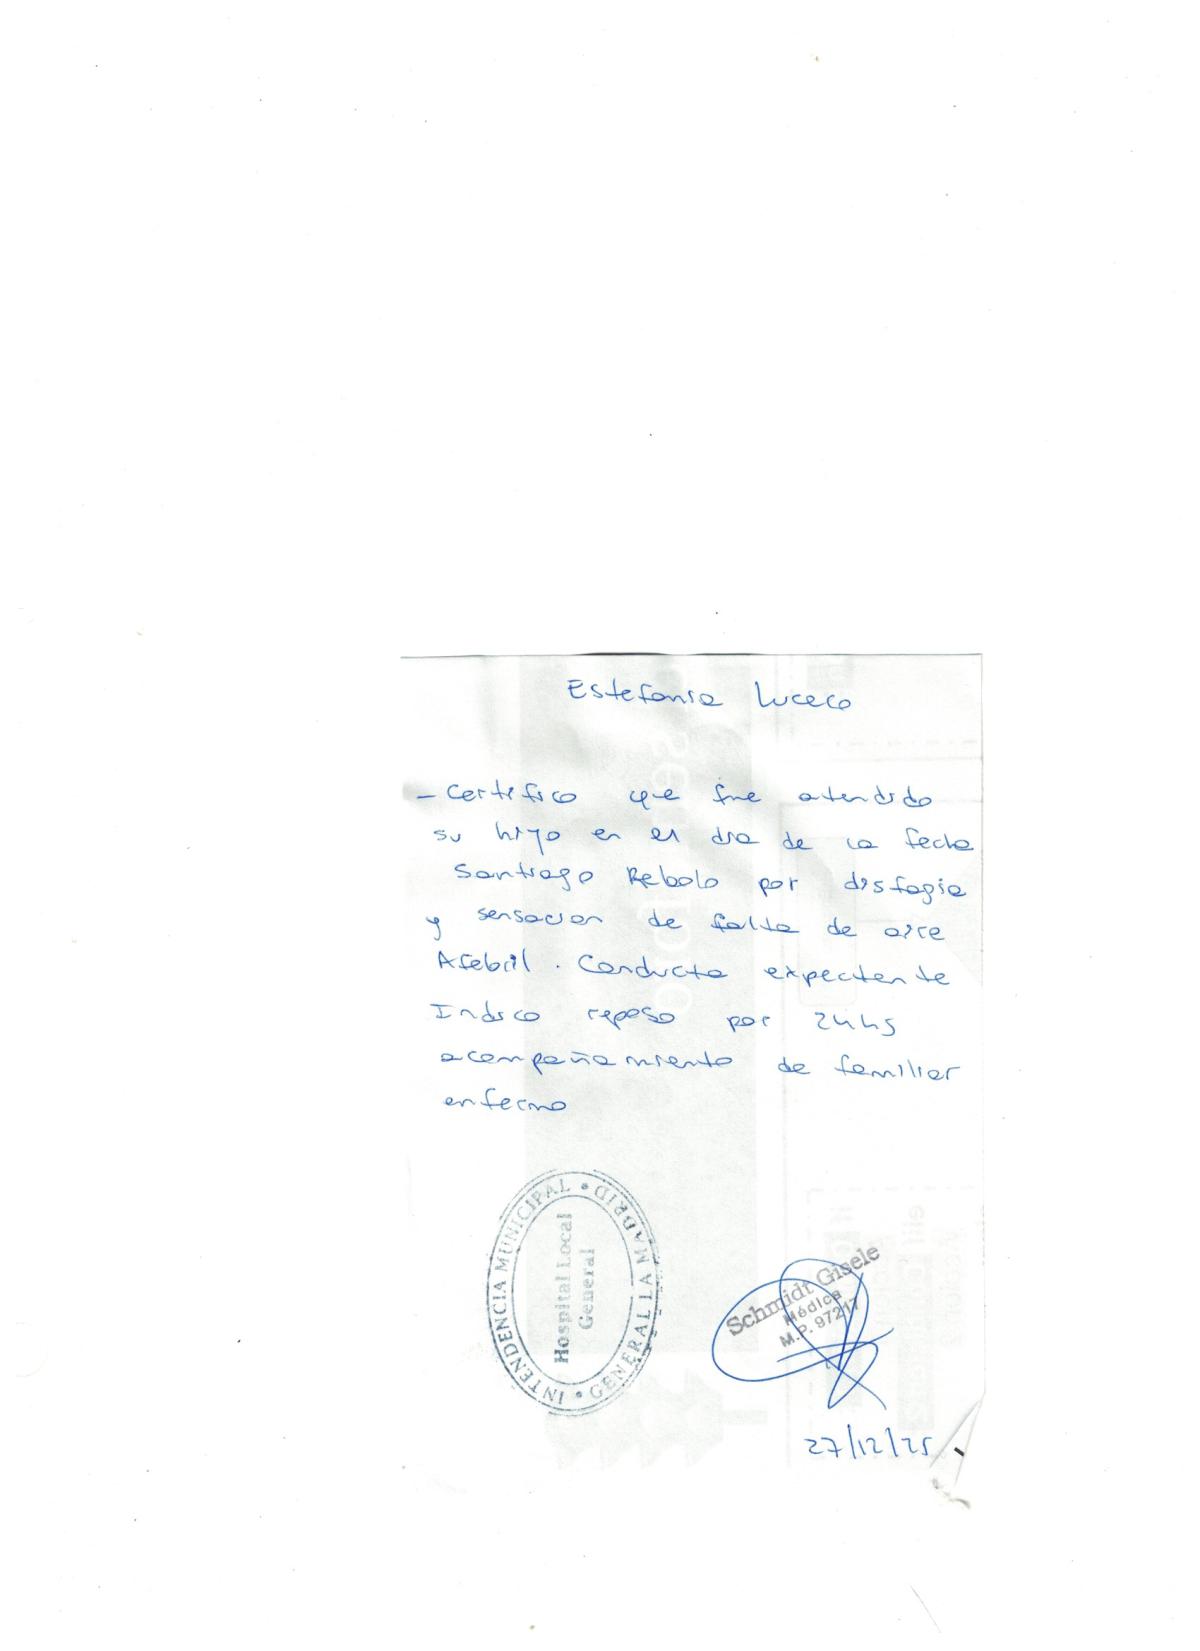 Estefania Lucero
- Certifico que fue atendido
su hijo en el dia de la fecha
Santiago Rebolo por disfagia
y sensacion de falta de aire
Afebril. Conducta expectente
Indico reposo por 24hs
acompañamiento de familiar
enfermo
INTENDENCIA MUNICIPAL • GENERAL LA MADRID •
Hospital Local
General
Schmidt Gisele
Médica
M.P. 97217
27/12/25